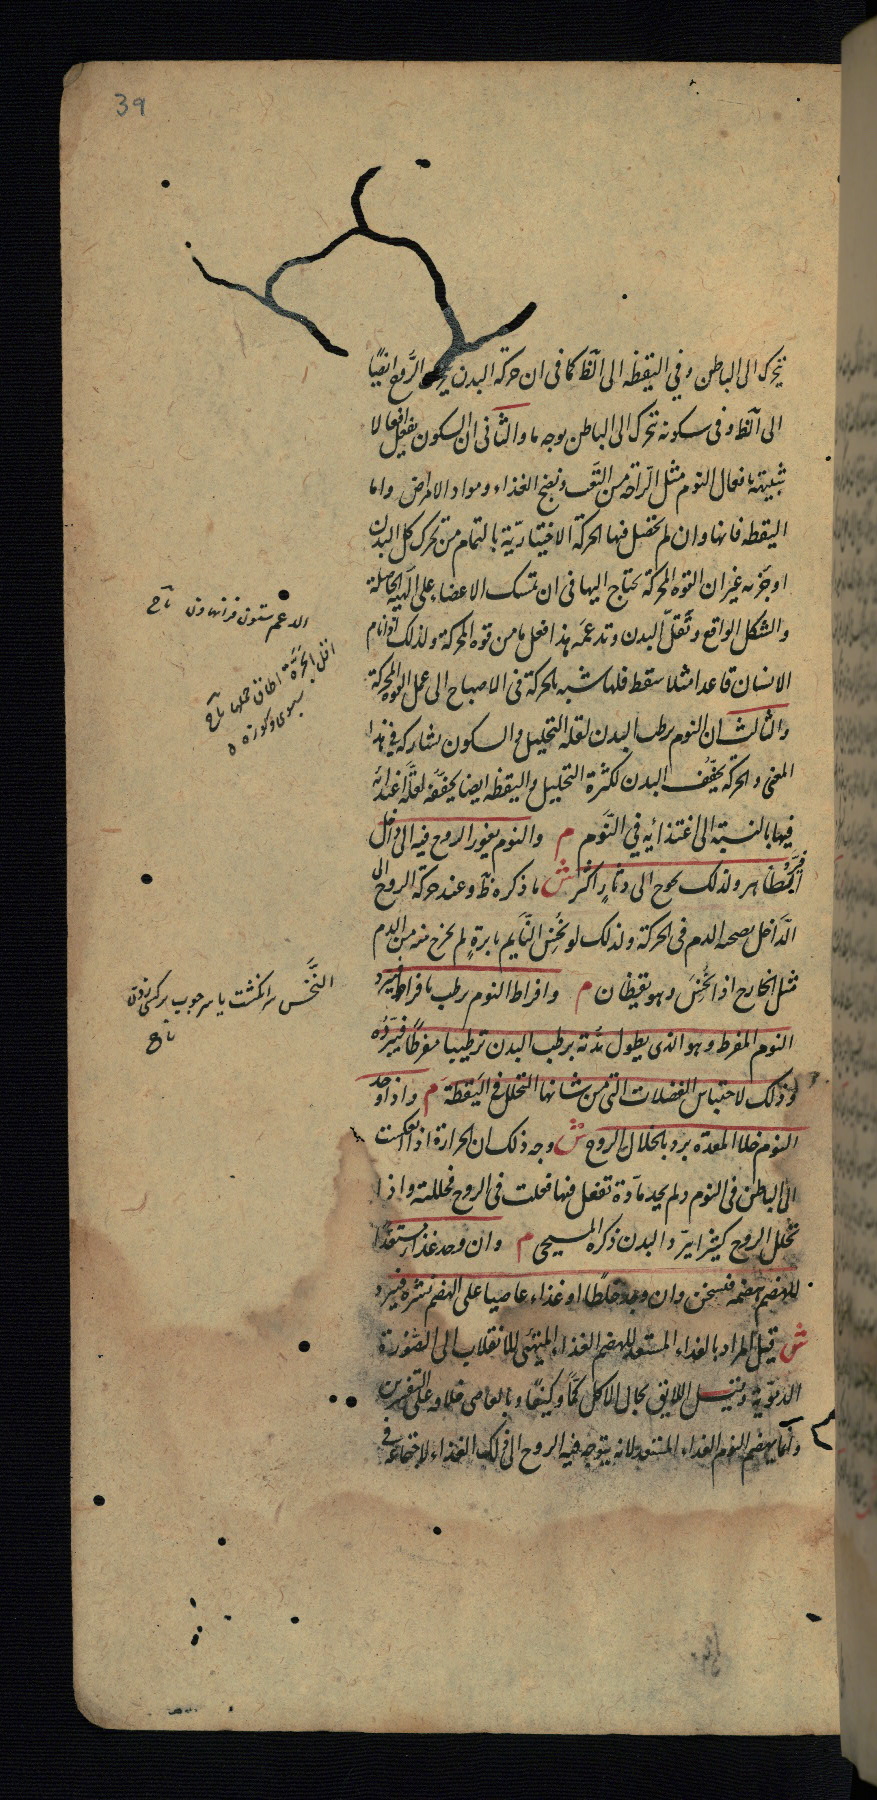 39
يتحرك الى الباطن وفي اليقظة الى الظ كما فى ان حركة البدن الروح ايضًا
الى الظ وفى سكونه تتحرك الى الباطن بوجه ما والثانى ان السكون يفعل افعالا
شبيهة بافعال النوم مثل الراحة من التعب ونضج الغذاء ومواد الامراض واما
اليقظه فانها وان لم تحصل فيها الحركة الاختياريّة بالتمام من تحرك كل البدن
او جزءه غير ان القوه المحركة يحتاج اليها فى ان تمسك الاعضاء على الهيّة الحاصلة
والشكل الواقع وثقل البدن وتدعمه بهذا فعل ما من قوه المحركة ولذلك اذا نام
الانسان قاعدا مثلا سقط فلها شبه بالحركة فى الاصباح الى عمل القوه المحركة
والثالث ان النوم يرطب البدن لقله التحليل والسكون يشاركه فى هذا
المعنى والحركة يجفّف البدن لكثرة التحليل واليقظه ايضا يجففه لقلّة اغتذائه
فيها بالنسبة الى اغتذائه في النّوم م والنوم يغور الروح فيه الى داخل
فيبرد الظاهر ولذلك يحوج الى دثار اكثر ش ما ذكره ظ وعند حركة الروح الى
الدّاخل يصحبه الدم فى الحركة ولذلك لو نُخِسَ النَّايم بابرة لم يخرج منه من الدم
مثل الخارج اذا نُخِسَ وهو يقظان م وافراط النوم رطب بافراط فيبرد
النوم المفرط وهو الذى يطول مدّته يرطب البدن ترطيبا مفرطًا فيبرّده
وذلك لاحتباس الفضلات التى من شانها التحلل فى اليَقظة م واذا وجد
النوم خلاء المعدة برد بانحلال الروح ش وجه ذلك ان الحرارة اذا انعكست
الى الباطن فى النوم ولم يجد مآدة تفعل فيها فعلت فى الروح فحللته واذا
تحلل الروح كثيرا يبرّد البدن ذكره المسيحى م وان وجد غذاء مستعدًا
للهضم هضمه فسخن وان وجد خلطًا او غذاء عاصيا على الهضم نشره فبرد
ش قيل المراد بالغذاء المستعد للهضم الغذاء المتهيئ للانقلاب الى الصّورة
الدمويّة وقيل اللايق بحال الآكل كمًّا وكيفًا وبالعاصى خلافه على التفسيرين
وانما يهضم النوم الغذاء المستعد لانه يتوجه فيه الروح الى ذلك الغذاء لاجتماعه فى
الدعم ستون فرانهادن تاج
اقل الجرّة اطاق حملها تاج
سبوى وكوزه
النَّخس سر انكشت يا سر چوب بر كسى زدن
تاج